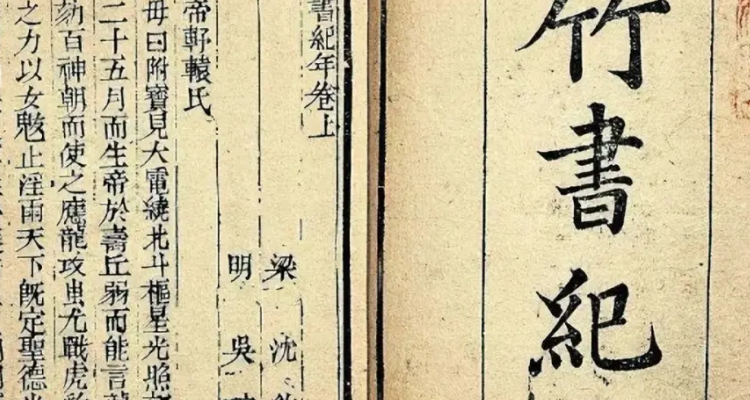 竹書紀
書紀年卷上
梁 沈
明 吳
帝軒轅氏
母曰附寶見大電繞北斗樞星光照
二十五月而生帝於壽丘弱而能言龍
劾百神朝而使之應龍攻蚩尤戰虎
之力以女魃止淫雨天下既定聖德